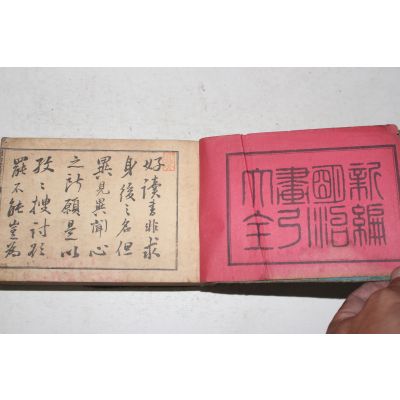 新編
明治
畫引
大全
好讀書非求
身後之名但
異見異聞心
之所願是以
孜々搜討欲
罷不能豈為